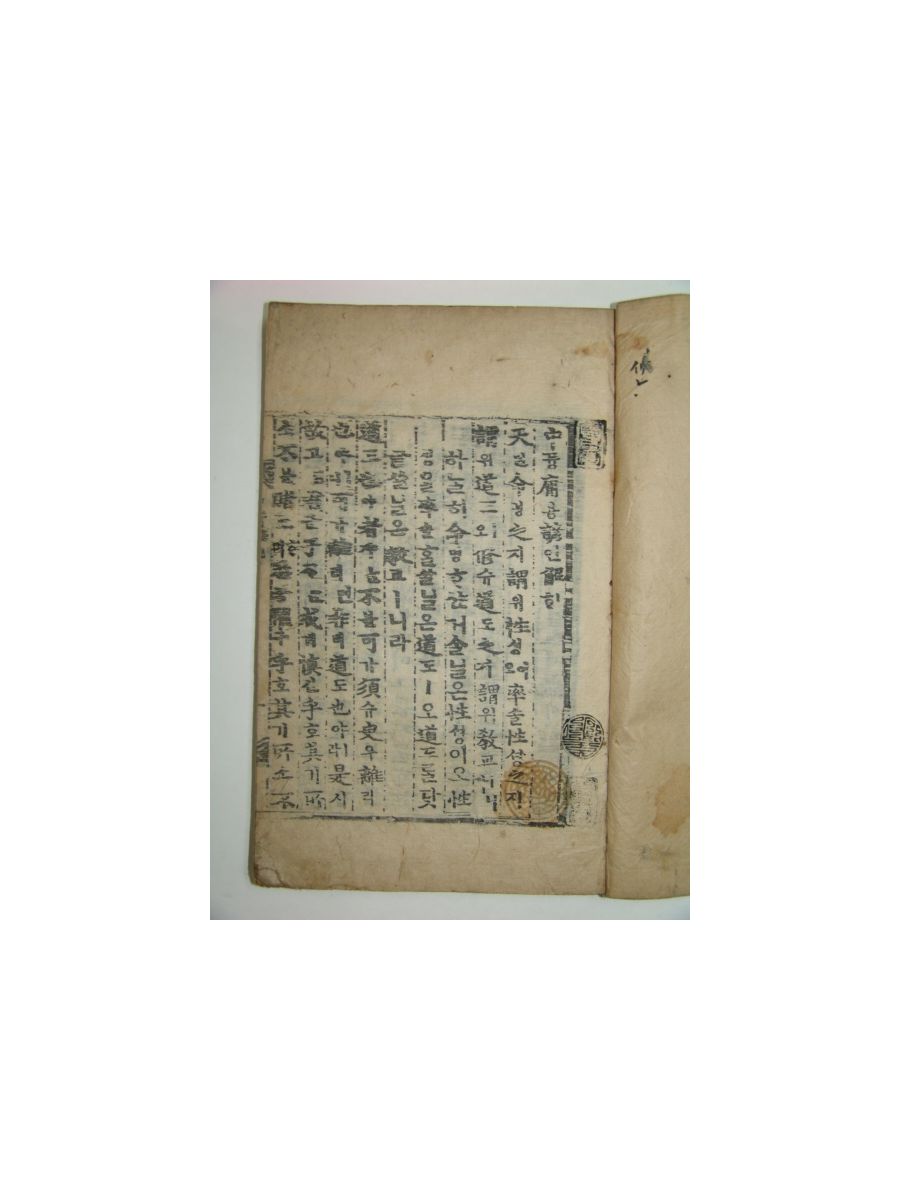 中듕庸용諺언解ᄒᆡ
天텬命명之지謂위性셩이오率솔性셩之지
謂위道도ㅣ오修슈道도之지謂위敎교ㅣ니라
하ᄂᆞᆯ히命명ᄒᆞ산거슬닐온性셩이오性
셩을率솔홈을닐온道도ㅣ오道도ᄅᆞᆯ닷
글슬닐온敎교ㅣ니라
道도也야者쟈ᄂᆞᆫ不블可가須슈臾유離리
也야ㅣ니可가離리면非비道도也야ㅣ라是시
故고로君군子ᄌᆞᄂᆞᆫ戒계愼신乎호其기所
소不블睹도ᄒᆞ며恐공懼구乎호其기所소不